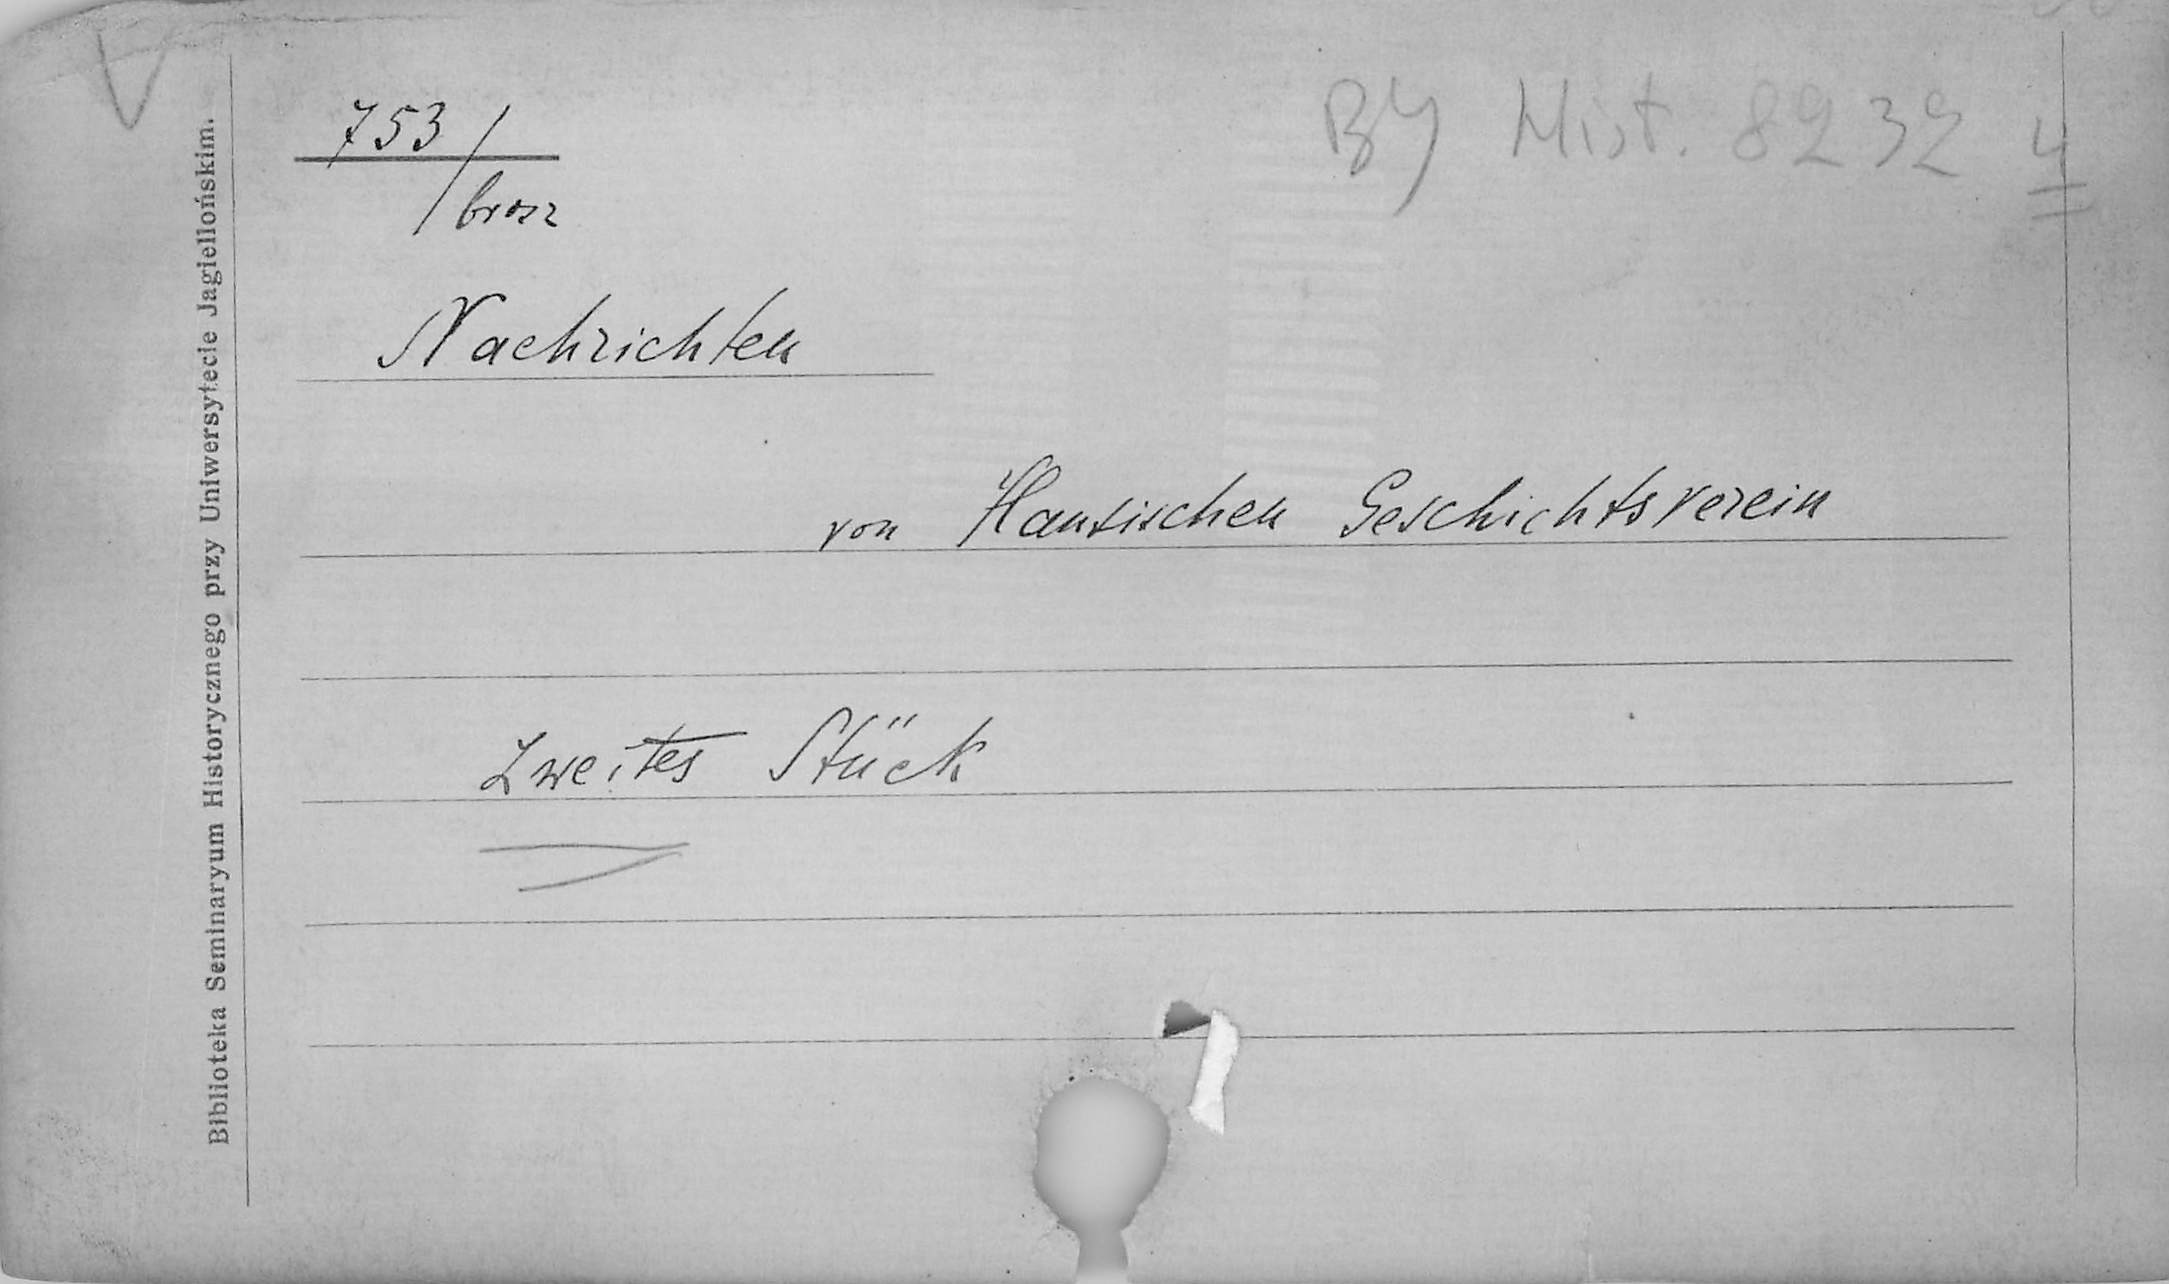 753/brosz
BY Hist. 8232 4
Nachrichten
von Hansischen Geschichtsverein
Zweites Stück
Biblioteka Seminaryum Historycznego przy Uniwersytecie Jagiellońskim.